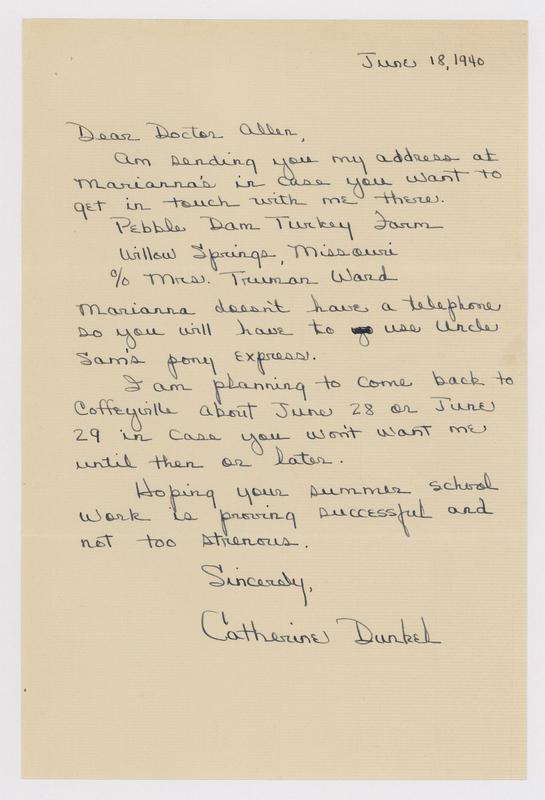 June 18, 1940
Dear Doctor Allen,
Am sending you my address at
Marianna's in case you want to
get in touch with me there.
Pebble Dam Turkey Farm
Willow Springs, Missouri
℅ Mrs. Truman Ward
Marianna doesn't have a telephone
so you will have to use Uncle
Sam's pony express.
I am planning to come back to
Coffeyville about June 28 or June
29 in case you won't want me
until then or later.
Hoping your summer school
work is proving successful and
not too strenous.
Sincerely,
Catherine Dunkel